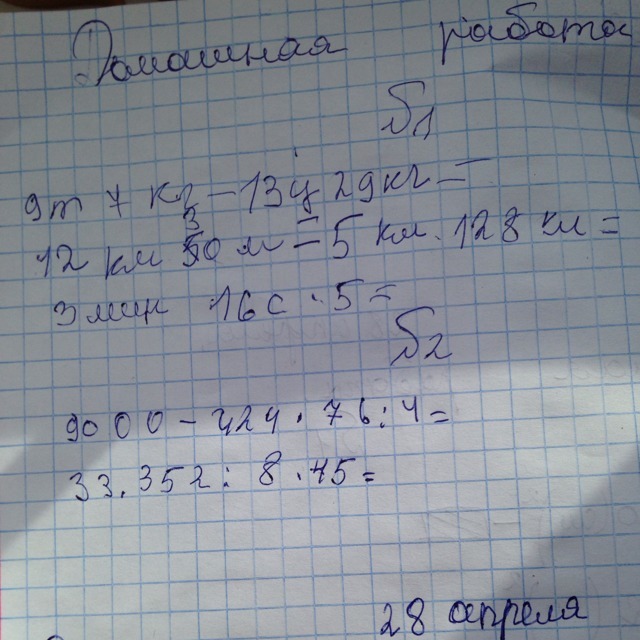 Домашная работа
№1
9т 7 кг - 13ц 29кг =
12 км 30 м - 5 км. 128 км =
3 мин 16с · 5 =
№2
9000 - 424 · 76 : 4 =
33.352 : 8 · 45 =
28 апреля